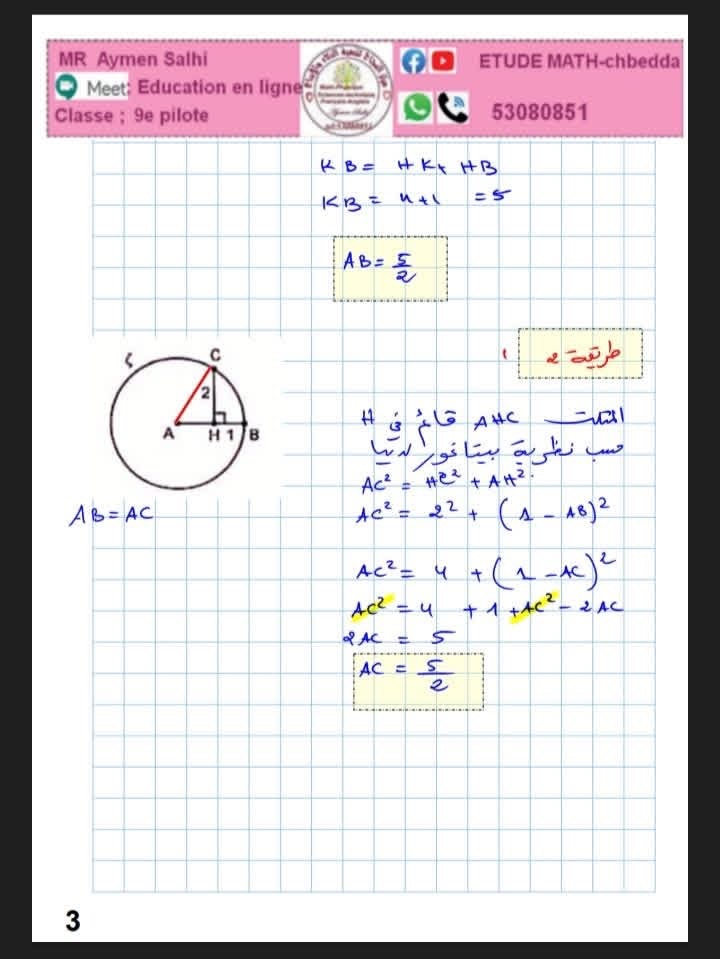 MR Aymen Salhi
Meet: Education en ligne
Classe ; 9e pilote
ETUDE MATH-chbedda
53080851
KB = HK + HB
KB = 4+1 = 5
AB = 5/2
طريقة 2
C
2
A H 1 B
AB = AC
المثلث AHC قائم في H
حسب نظرية بيتاغور لدينا
AC² = HC² + AH².
AC² = 2² + (1 - AB)²
AC² = 4 + (1 - AC)²
AC² = 4 + 1 + AC² - 2AC
2AC = 5
AC = 5/2
3